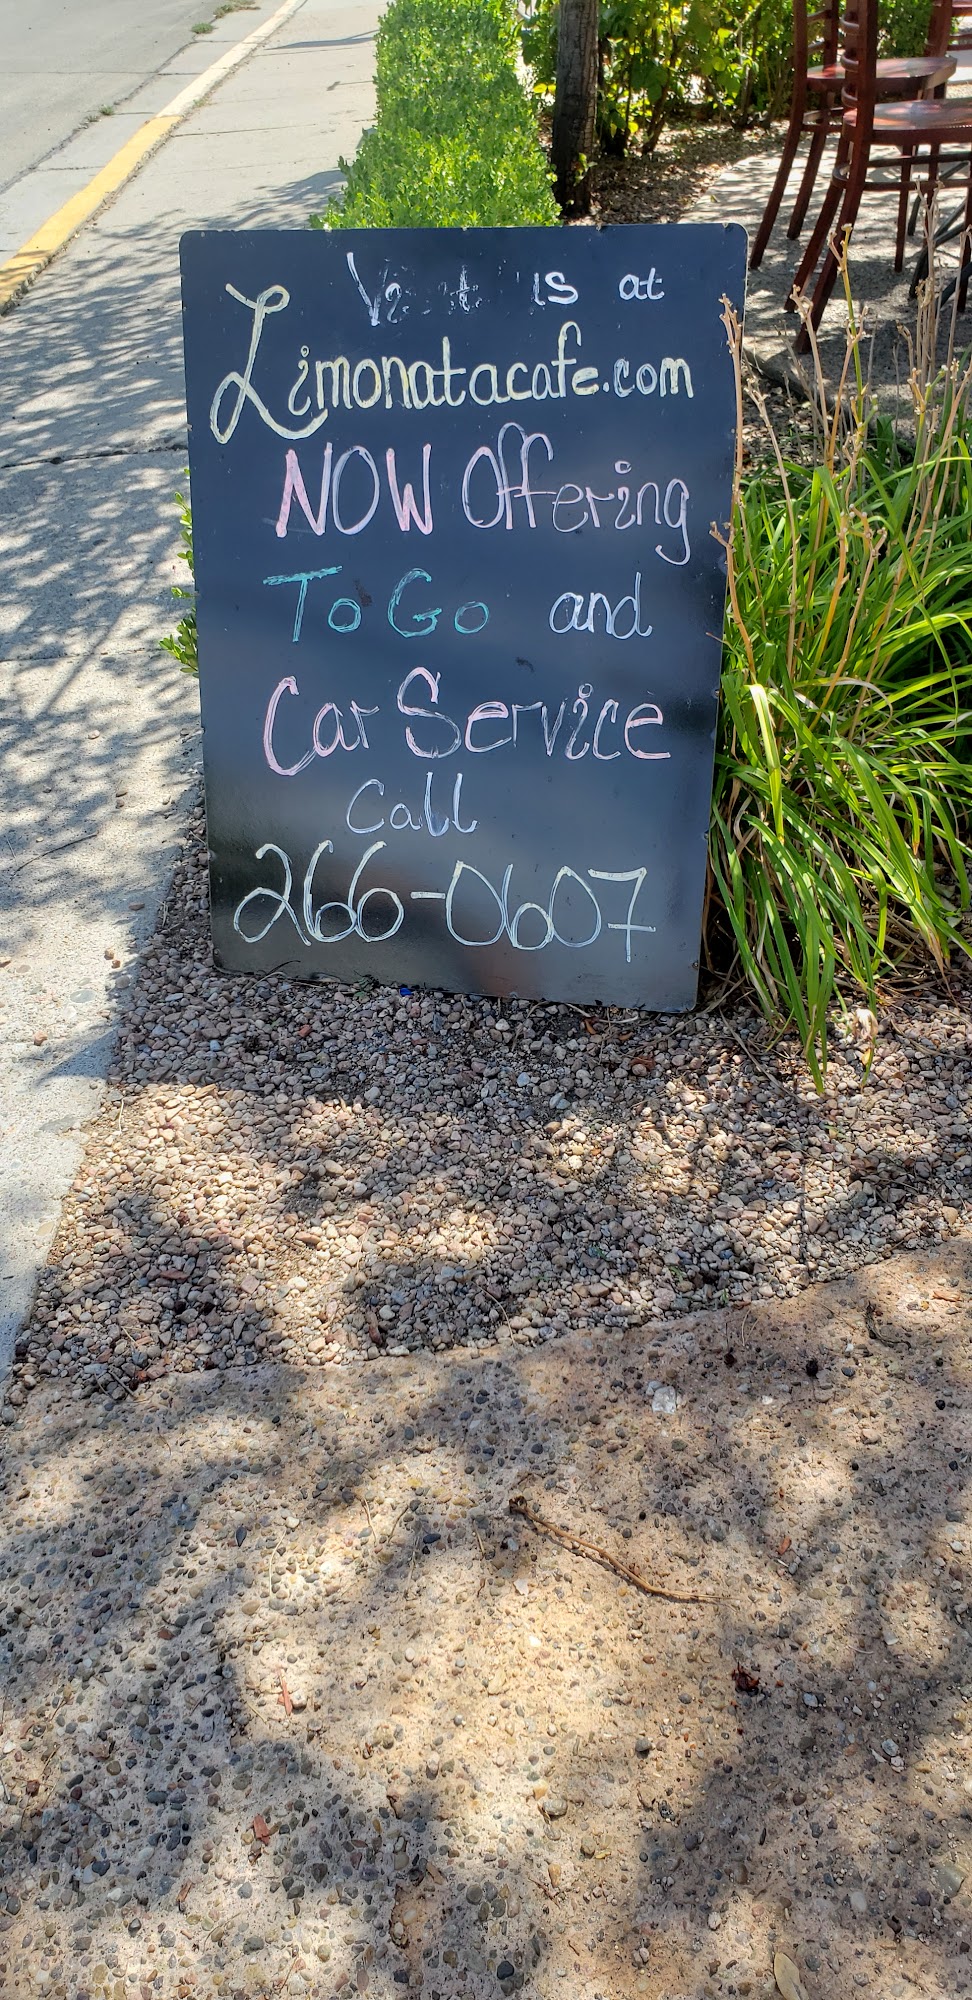 Visit us at
Limonatacafe.com
NOW Offering
To Go and
Car Service
Call
266-0607